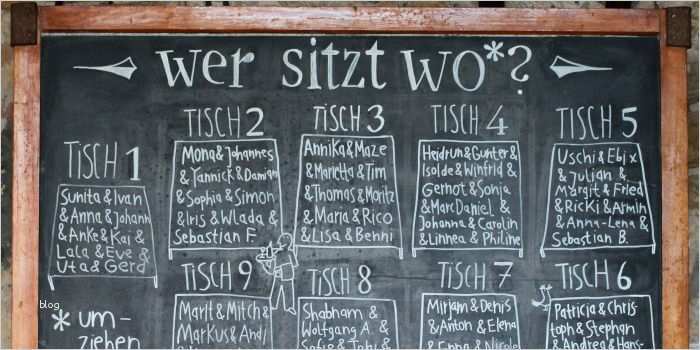 wer sitzt wo*?
TISCH 1
Sunita & Ivan
& Anna & Johann
& Anke & Kai &
Lala & Eve &
Uta & Gerd
TISCH 2
Mona & Johannes
& Yannick & Damian
& Sophia & Simon
& Iris & Wlada &
Sebastian F.
TISCH 3
Annika & Maze
& Marietta & Tim
& Thomas & Moritz
& Maria & Rico
& Lisa & Benni
TISCH 4
Heidrun & Gunter &
Isolde & Winfrid &
Gernot & Sonja
& Marc Daniel &
Johanna & Carolin
& Linnea & Philine
TISCH 5
Uschi & Ebi x
& Julian &
Margit & Fried
& Ricki & Armin
& Anna-Lena &
Sebastian B.
TISCH 9
Marit & Mitch &
Markus & Andi
TISCH 8
Shabnam &
Wolfgang A. &
Sofie & Tobi &
TISCH 7
Mirjam & Denis
& Anton & Elena
& Enna & Nicole
TISCH 6
Patricia & Chris-
toph & Stephan
& Andrea & Hans-
blog.
* um-
ziehen